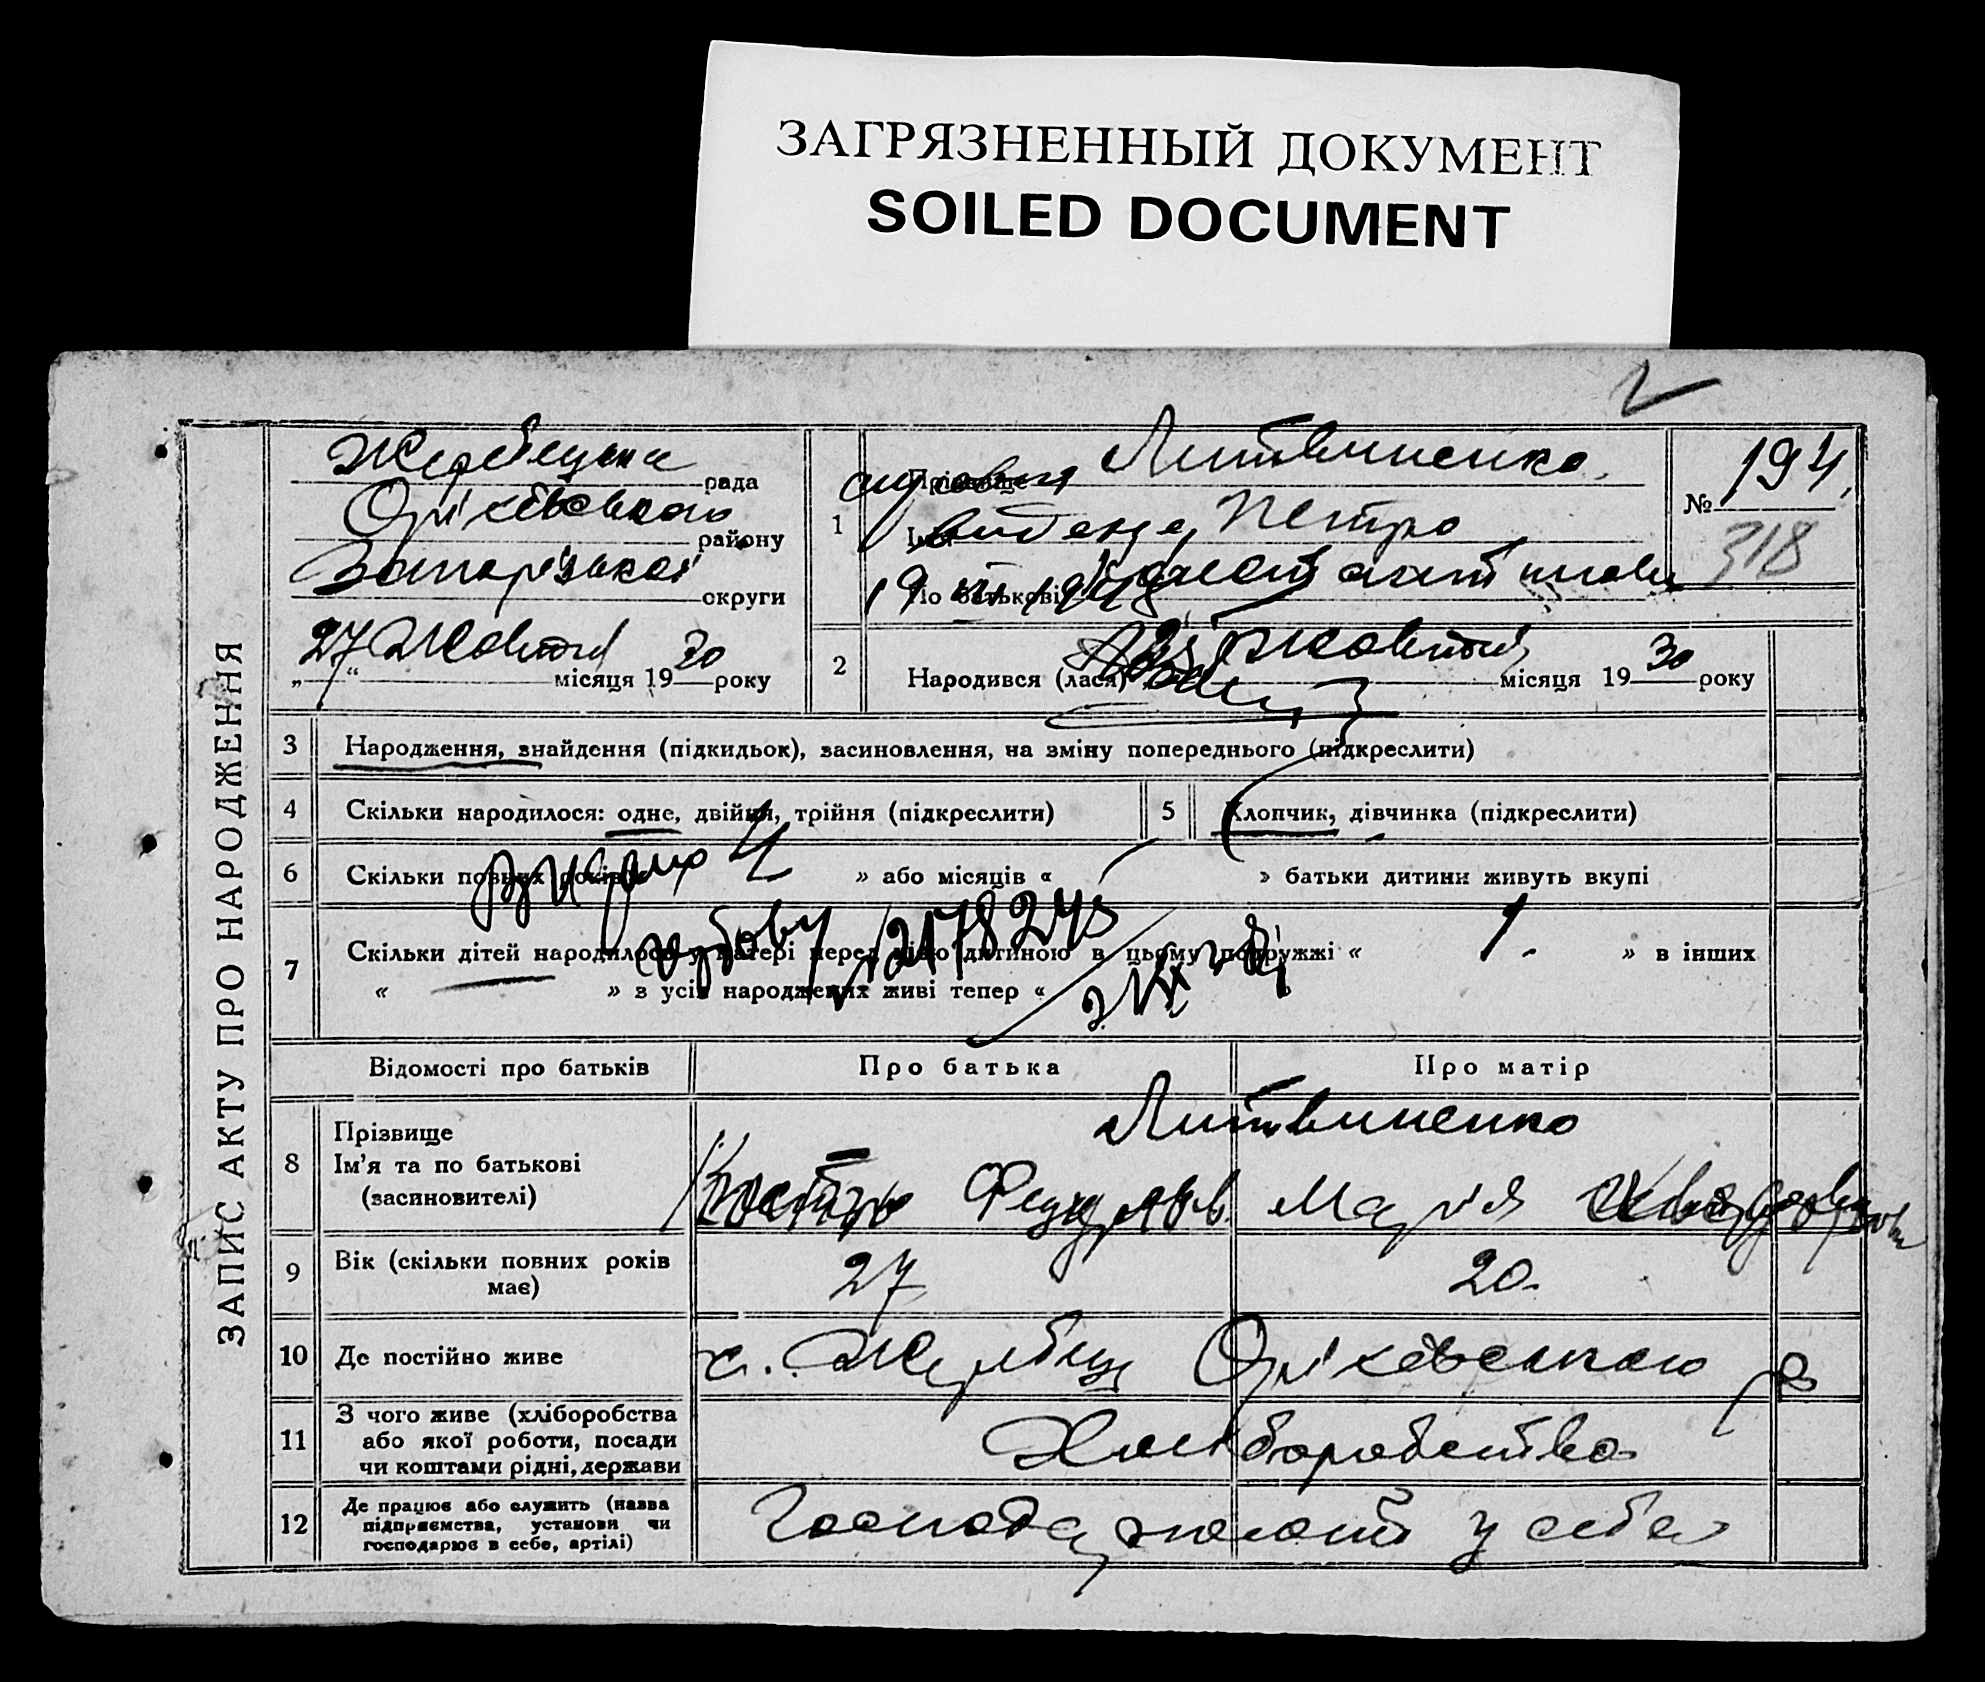 ЗАГРЯЗНЕННЫЙ ДОКУМЕНТ
SOILED DOCUMENT
ЗАПИС АКТУ ПРО НАРОДЖЕННЯ
Жеребецька рада
Оріхівського району
Запорізької округи
„27“ Жовтня місяця 1930 року
1 Прізвище Литвиненко
Ім'я Петро
По батькові
№ 194
318
2 Народився (лася) Жовтня місяця 1930 року
3 Народження, знайдення (підкидьок), засиновлення, на зміну попереднього (підкреслити)
4 Скільки народилося: одне, двійня, трійня (підкреслити)
5 Хлопчик, дівчинка (підкреслити)
6 Скільки повних років » або місяців « » батьки дитини живуть вкупі
7 Скільки дітей народилося у матері перед цією дитиною в цьому подружжі « 1. » в інших
« — » з усіх народжених живі тепер «
Відомості про батьків Про батька Про матір
8 Прізвище
Ім'я та по батькові
(засиновителі)
Литвиненко
Марія
9 Вік (скільки повних років має) 27 20.
10 Де постійно живе с. Жеребець Оріхівського р
11 З чого живе (хліборобства
або якої роботи, посади
чи коштами рідні, держави
Хліборобство
12 Де працює або служить (назва
підприємства, установи чи
господарює в себе, артілі)
Господарюють у себе